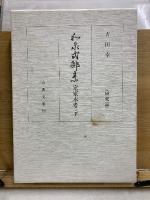 吉田幸一
和泉式部集
定家本考 下
研究篇
古典文庫